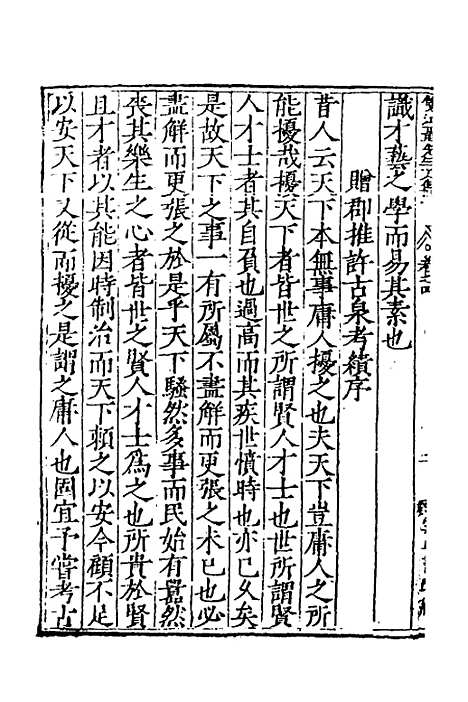 識才藝之學而易其素也
贈郡推許古泉考績序
昔人云天下本無事庸人擾之也夫天下豈庸人之所
能擾哉擾天下者皆世之所謂賢人才士也世所謂賢
人才士者其自負也過高而其疾世憤時也亦已久矣
是故天下之事一有所屬不盡解而更張之未已也必
盡解而更張之於是乎天下騷然多事而民始有囂然
喪其樂生之心者皆世之賢人才士爲之也所貴於賢
且才者以其能因時制治而天下頼之以安今顧不足
以安天下又從而擾之是謂之庸人也固宜予嘗考古